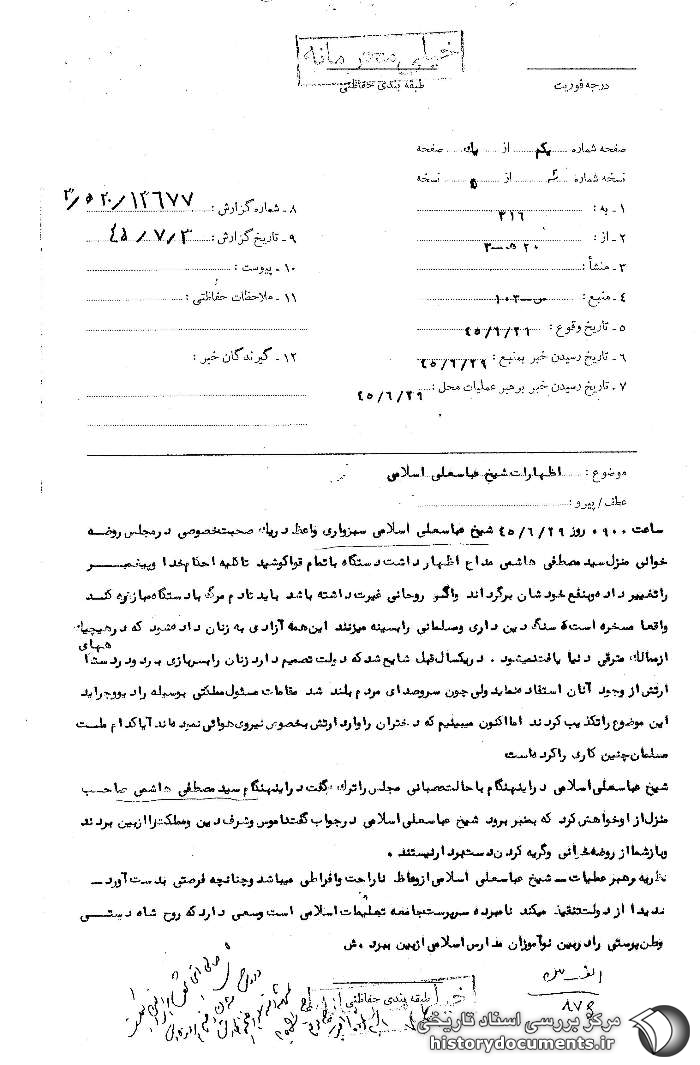 خیلی محرمانه
طبقه بندی حفاظتی
درجه فوریت
صفحه شماره یکم از یک صفحه
نسخه شماره از ۵ نسخه
۱ـ به : ۳۱۶
۲ـ از : ۲۰ ه ۳
۳ـ منشأ :
۴ـ منبع : ۱۰۳
۵ـ تاریخ وقوع : ۴۵/۶/۲۹
۶ـ تاریخ رسیدن خبر بمنبع : ۴۵/۶/۲۹
۷ـ تاریخ رسیدن خبر برهبر عملیات محل : ۴۵/۶/۲۹
۸ـ شماره گزارش : ۳/۵۲۰/۱۲۶۷۷
۹ـ تاریخ گزارش : ۴۵/۷/۳
۱۰ـ پیوست :
۱۱ـ ملاحظات حفاظتی :
۱۲ـ گیرندگان خبر :
موضوع : اظهارات شیخ عباسعلی اسلامی
عطف/پیرو :
ساعت ۰۹۰۰ روز ۴۵/۶/۲۹ شیخ عباسعلی اسلامی سبزواری واعظ در یک صحبت خصوصی در مجلس روضه
خوانی منزل سید مصطفی هاشمی مداح اظهار داشت دستگاه با تمام قوا کوشید تا کلیه احکام خدا و پیغمبر
را تغییر داده و بنفع خودشان برگرداند و اگر روحانی غیرت داشته باشد باید تا دم مرگ با دستگاه مبارزه کند
واقعا مسخره است که سنگ دین داری و مسلمانی را بسینه میزنند این همه آزادی به زنان داده شود که در هیچیک
از ممالک مترقی دنیا یافت نمیشود . در یکسال قبل شایع شد که دولت تصمیم دارد زنان را بسربازی ببرد و در رسته‌های
ارتش از وجود آنان استفاده نماید ولی چون سر و صدای مردم بلند شد مقامات مسئول مملکتی بوسیله رادیو و جراید
این موضوع را تکذیب کردند اما اکنون میبینیم که دختران را وارد ارتش بخصوص نیروی هوائی نموده‌اند آیا کدام ملت
مسلمان چنین کاری را کرده است
شیخ عباسعلی اسلامی در اینهنگام با حالت عصبانی مجلس را ترک گفت در اینهنگام سید مصطفی هاشمی صاحب
منزل از او خواهش کرد که بمنبر برود شیخ عباسعلی اسلامی در جواب گفت ناموس و شرف دین و مملکت را از بین بردند
و باز شما از روضه خوانی و گریه کردن دست بردار نیستند .
نظریه رهبر عملیات ـ شیخ عباسعلی اسلامی از وعاظ ناراحت و افراطی میباشد و چنانچه فرصتی بدست آورد ـ
شدیدا از دولت تنقید میکند نامبرده سرپرست جامعه تعلیمات اسلامی است و سعی دارد که روح شاه دوستی
وطن پرستی را در بین نوآموزان مدارس اسلامی از بین ببرد . ش
طبقه بندی حفاظتی
مرکز بررسی اسناد تاریخی
historydocuments.ir